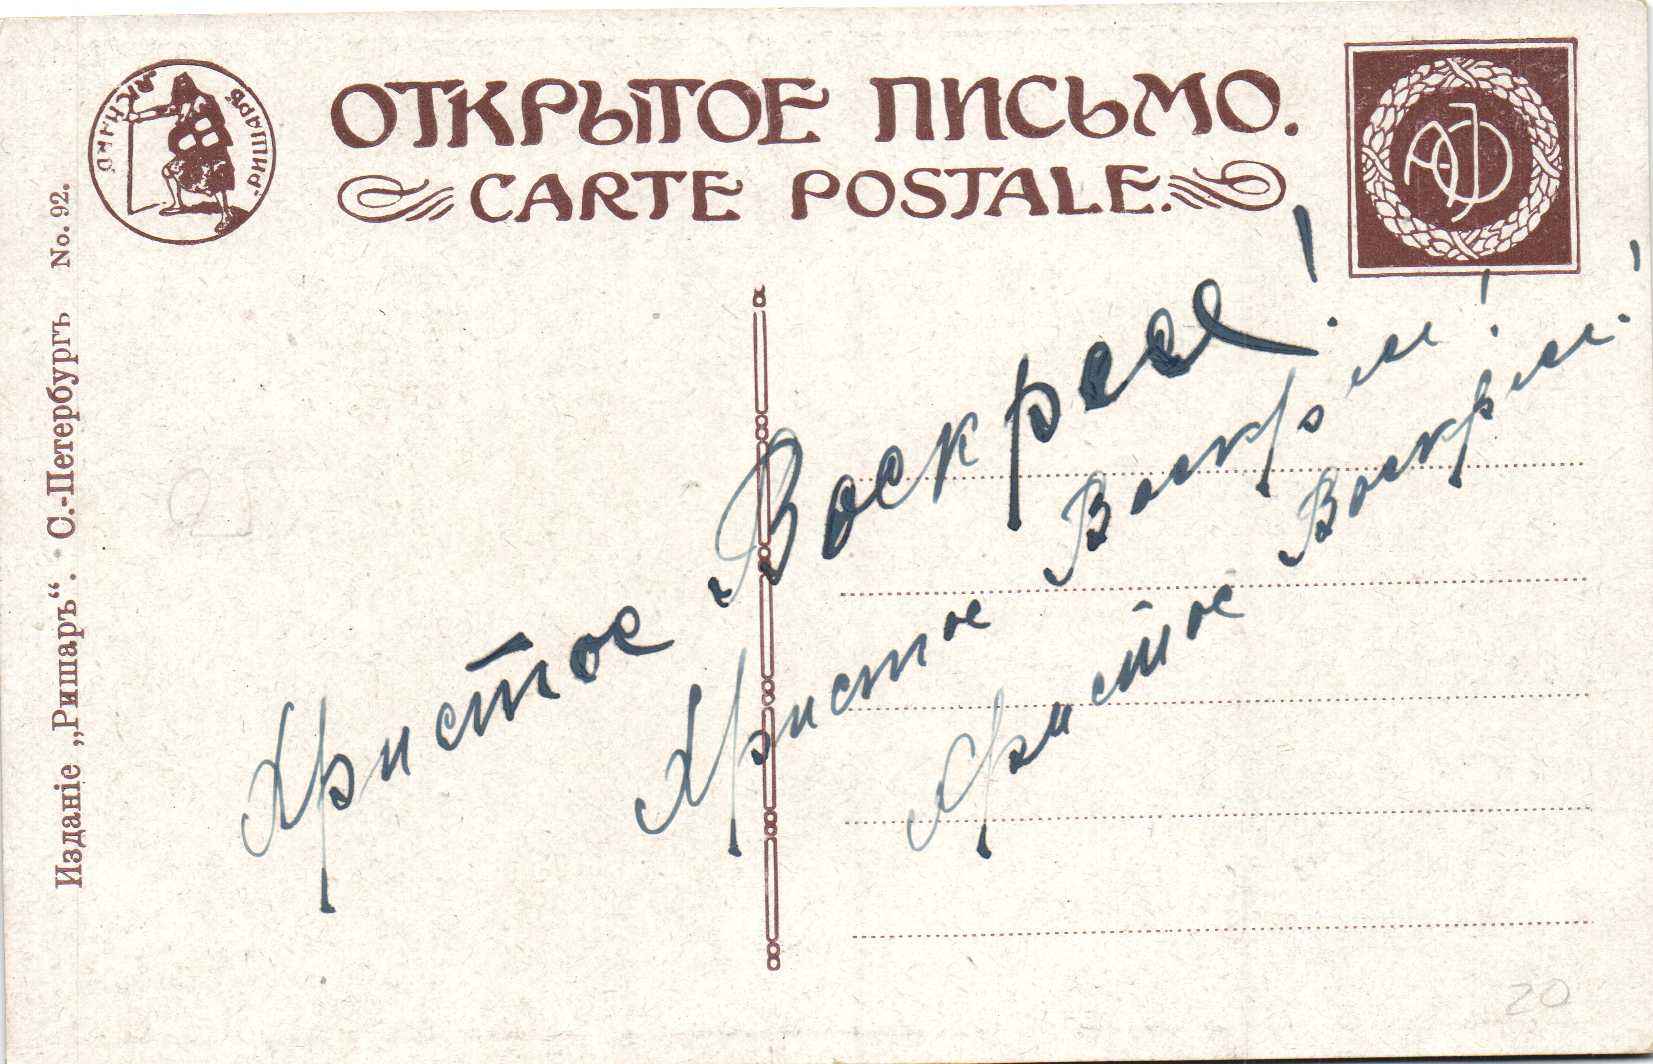 ОТКРЫТОЕ ПИСЬМО.
CARTE POSTALE.
Изданіе „Ришаръ“. С.-Петербургъ No. 92.
Христос Воскрес!
Христос Воскрес!
Христос Воскрес!
20